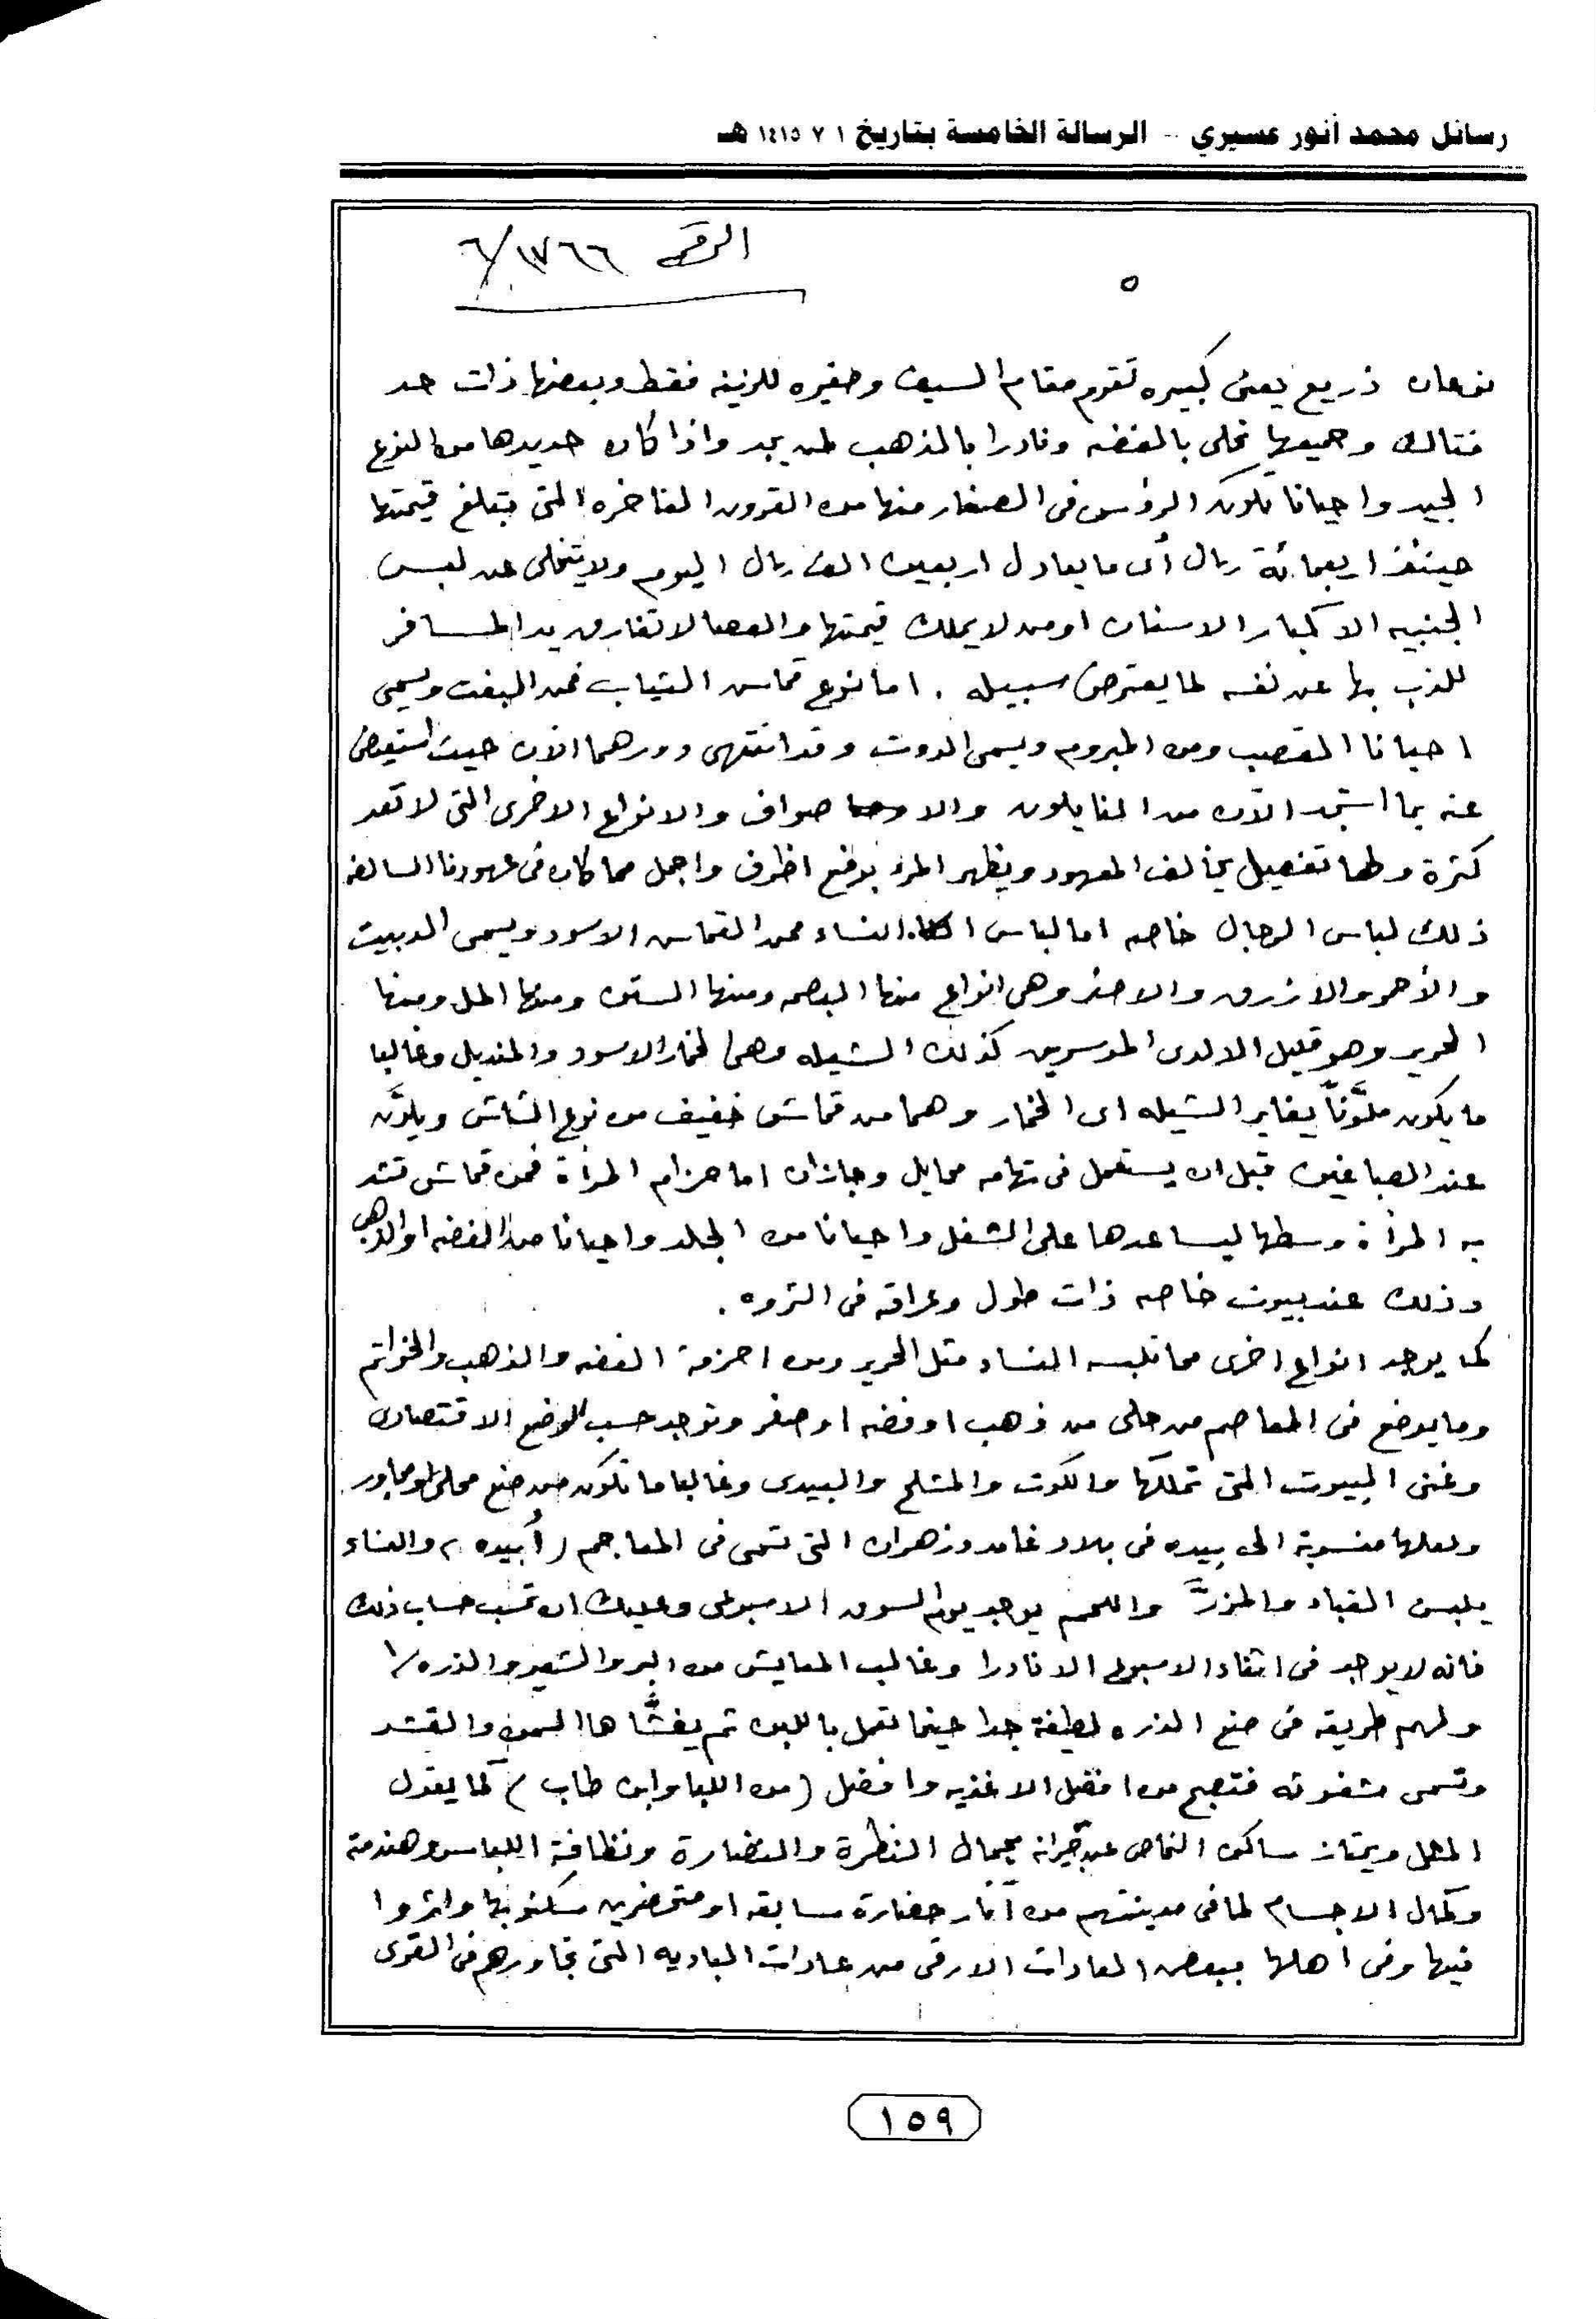 رسائل محمد أنور عسيري - الرسالة الخامسة بتاريخ ١ ٧ ١٤١٥ هـ
الرقم ١٧٦٦/٦
٥
نوعان ذريع يعنى كبيره تقوم مقام السيف وصغيره للزينه فقط وبعضها ذات حد
فتاك وجميعها تحلى بالفضه ونادرا بالذهب لمن يجد واذا كان حديدها من النوع
الجيد واحيانا تكون الرؤس فى الصغار منها من القرون الفاخره التى تبلغ قيمتها
حينئذ اربعمائة ريال أى ما يعادل اربعين الف ريال اليوم ولا يتخلى عن لبس
الجنبيه الا كبار الاسنان او من لا يملك قيمتها والعصا لا تفارق يد المسافر
للذب بها عن نفسه لما يعترض سبيله . اما نوع قماس الثياب فمن البفت ويسمى
احيانا المقصب ومن المبروم ويسمى الدوت وقد انتهى دورهما الآن حيث استعيض
عنه بما استجد الآن من النايلون والا صواف والانواع الاخرى التى لا تعد
كثرة ولها تفصيل يخالف المعهود ويظهر المرء بوضع اظرف واجمل مما كان فى عهودنا السالفه
ذلك لباس الرجال خاصه اما لباس النساء فمن القماس الاسود ويسمى الدبيت
والأحمر والازرق والاخضر وهى انواع منها البصمه ومنها الستن ومنها الململ ومنها
الحرير وهو قليل الا لدى الموسرين كذلك الشيله وهى الخمار الاسود والمنديل وغالبا
ما يكون ملوّناً يغاير الشيله اى الخمار وهما من قماش خفيف من نوع الشاش ويلوّن
عند الصباغين قبل ان يستعمل فى تهامه محايل وجازان اما حزام المرأة فمن قماش تشد
به المرأة وسطها ليساعدها على الشغل واحيانا من الجلد واحيانا من الفضه او الذهب
وذلك عند بيوت خاصه ذات طول وعراقه فى الثروه .
كما يوجد انواع اخرى مما تلبسه النساء مثل الحرير ومن احزمة الفضه والذهب والخواتم
وما يوضع فى المعاصم من حلى من ذهب او فضه او صفر وتوجد حسب الوضع الاقتصادى
وغنى البيوت التى تملكها والكوت والمشلح والبيدى وغالبا ما تكون من صنع محلى او مجاور
ولعلها منسوبة الى بيده فى بلاد غامد وزهران التى تسمى فى المعاجم (أبيده) والنساء
يلبسن القباء والمزرّ واللحم يوجد يوم السوق الاسبوعى وعليك ان تحسب حساب ذلك
فانه لا يوجد فى اثناء الاسبوع الا نادرا وغالب المعايش من البر والشعير والذره /
ولهم طريقه فى صنع الذره لطيفة جدا حينما تعمل باللبن ثم يغشّاها السمن والقشد
وتسمى مشغوثه فتصبح من افضل الاغذيه وافضل (من اللبا وابن طاب) كما يقول
المثل ويمتاز ساكن النماص عن جيرانه بجمال النظرة والنضارة ونظافة اللباس وهندمة
وكمال الاجسام لما فى مدينتهم من آثار حضارة سابقه او متحضرين سكنوا بها واثروا
فيها وفى اهلها ببعض العادات الارقى من عادات الباديه التى تجاورهم فى القرى
١٥٩